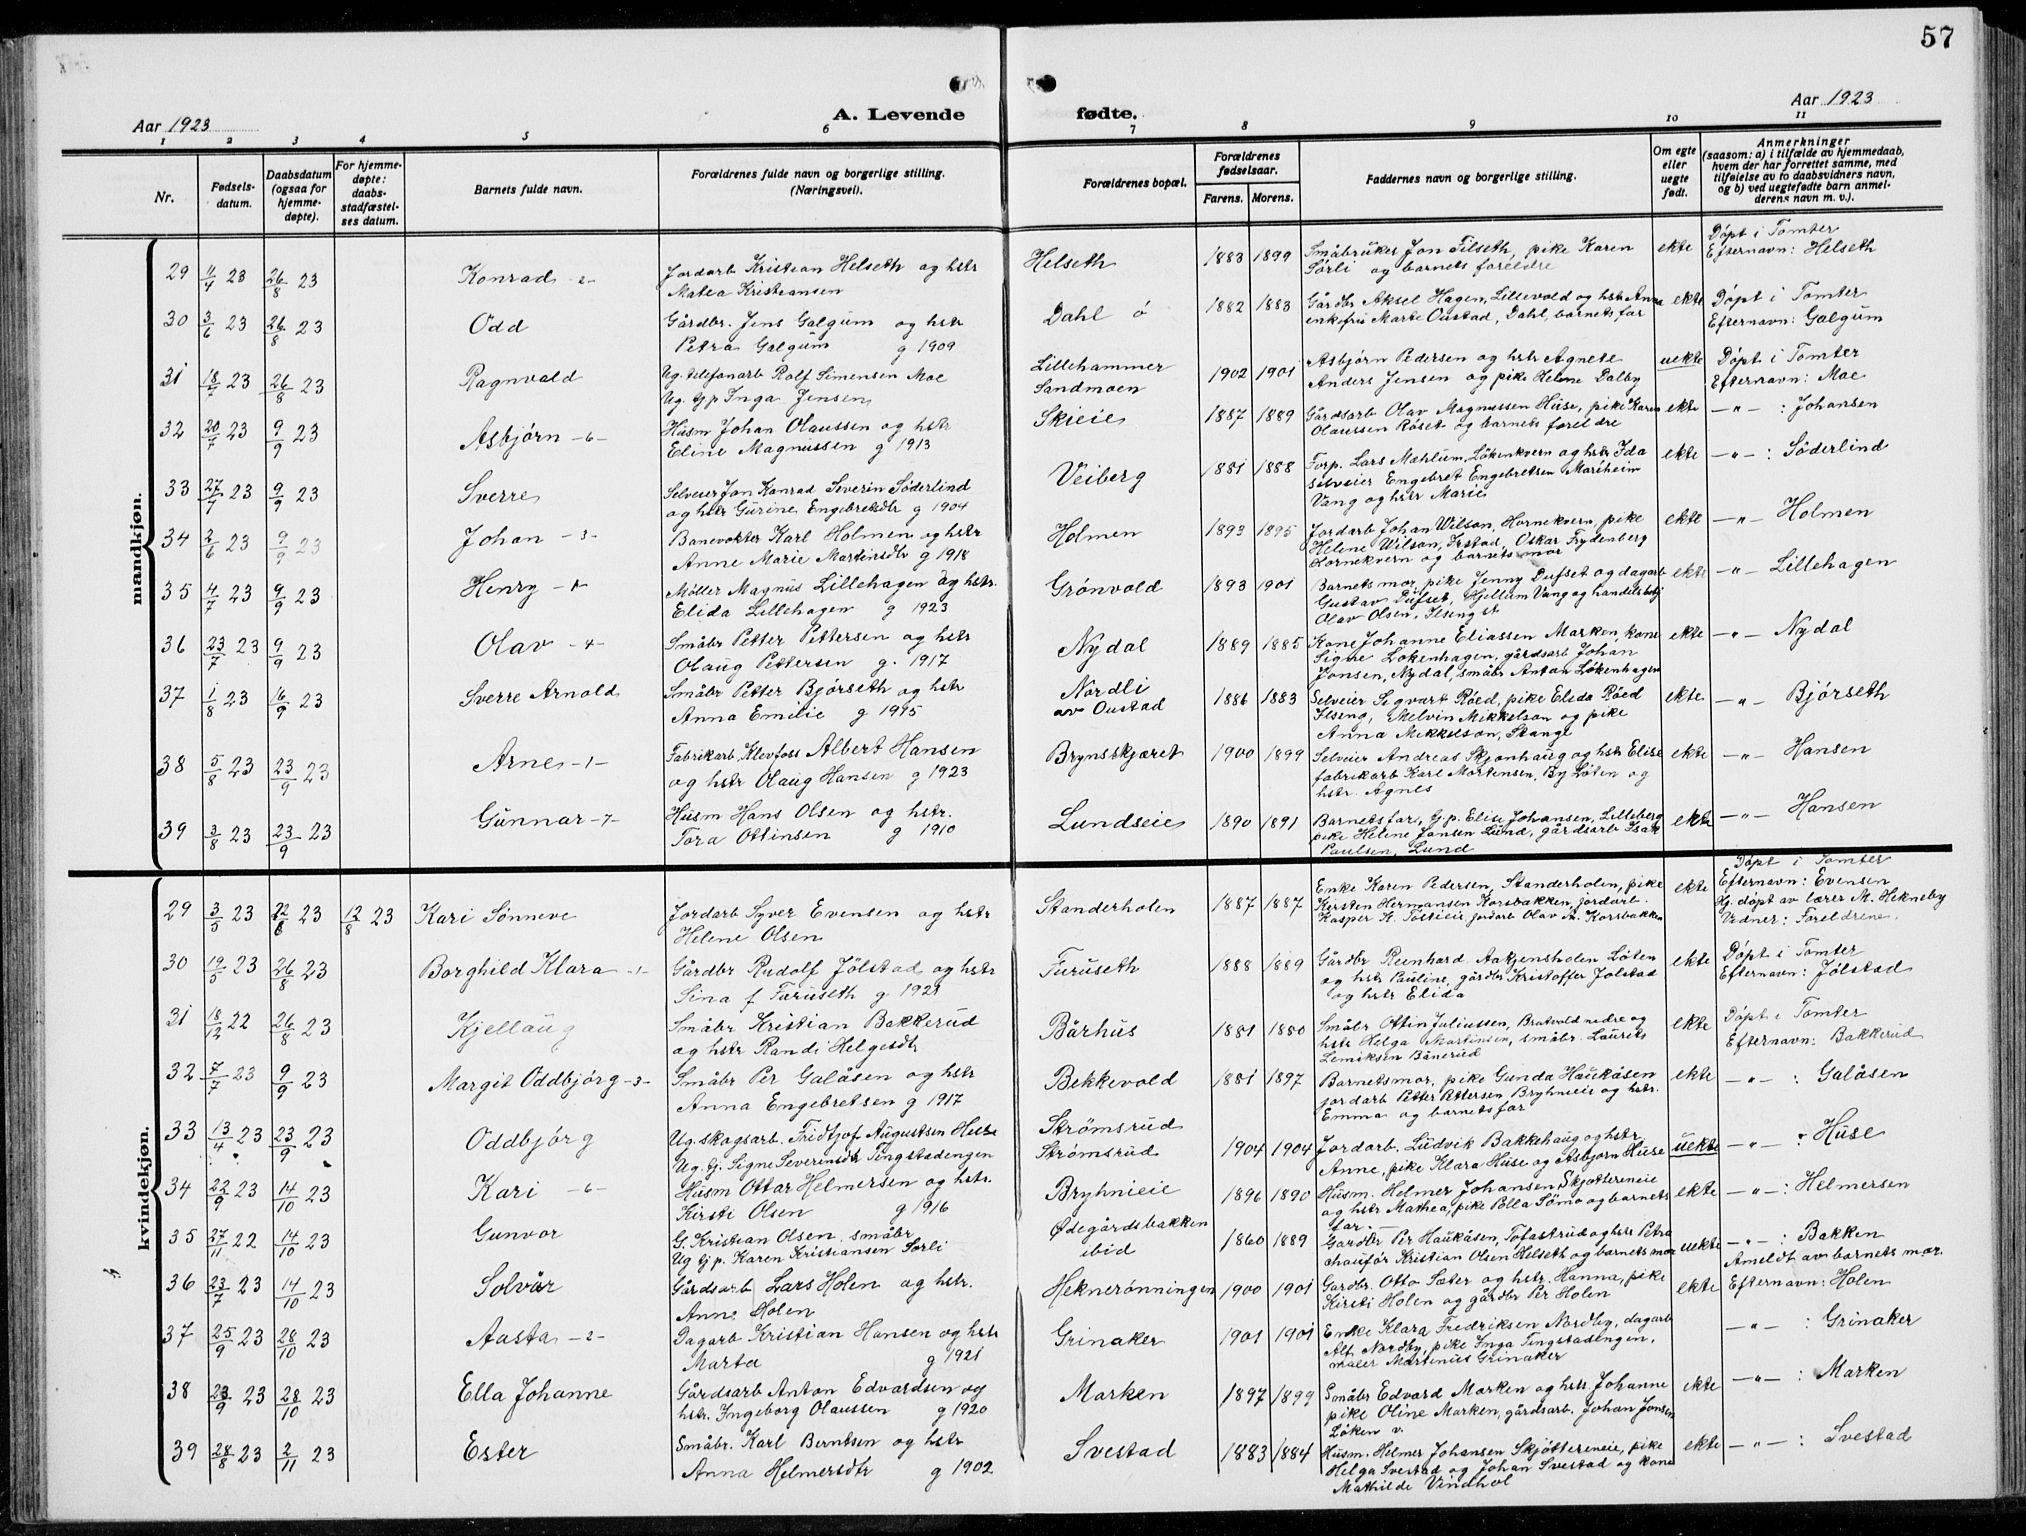 57
Aar 1923
A. Levende
fødte.
Aar 1923
1 2 3 4 5 6 7 8 9 10 11
Nr.
Fødsels-
datum.
Daabsdatum
(ogsaa for
hjemme-
døpte).
For hjemme-
døpte:
daabs-
stadfæstel-
ses datum.
Barnets fulde navn.
Forældrenes fulde navn og borgerlige stilling.
(Næringsvei).
Forældrenes bopæl.
Forældrenes
fødselsaar.
Farens. Morens.
Faddernes navn og borgerlige stilling.
Om egte
eller
uegte
født.
Anmerkninger
(saasom: a) i tilfælde av hjemmedaab,
hvem der har forrettet samme, med
tilføielse av to daabsvidners navn,
og b) ved uegtefødte barn anmel-
derens navn m. v.).
mandkjøn.
29 11/4 23 26/8 23 Konrad -2-
Jordarb Kristian Helseth og hstr
Matea Kristiansen
Helseth 1883 1899
Småbruker Jon Tilseth, pike Karen
Sørli og barnets foreldre
ekte
Døpt i Tomter
Efternavn: Helseth
30 3/6 23 26/8 23 Odd
Gårdbr. Jens Galgum og hstr
Petra Galgum g 1909
Dahl ø 1882 1883
Gårdbr Aksel Hagen, Lillevold og hstr Anna
enkefru Marte Oustad, Dahl, barnets far
ekte
Døpt i Tomter
Efternavn: Galgum
31 18/7 23 26/8 23 Ragnvald
Ug. telefonarb Rolf Simensen Moe
Ug. Gjp Inga Jensen
Lillehammer
Sandmoen
1902 1901
Asbjørn Pedersen og hstr Agnete
Anders Jensen og pike Helene Dalby
uekte
Døpt i Tomter
Efternavn: Moe
32 20/7 23 9/9 23 Asbjørn -6-
Husm Johan Olaussen og hstr
Eline Magnussen g 1913
Skieie 1887 1889
Gårdsarb Olav Magnussen Huse, pike Karen
Olaussen Røset og barnets foreldre
ekte
-"- : Johansen
33 27/7 23 9/9 23 Sverre
Selveier Jon Konrad Severin Söderlind
og hstr Gurine Engebretsdtr g 1904
Veiberg 1881 1888
Forp. Lars Mæhlum, Løkenkvern og hstr Ida
selveier Engebret Engebretsen Mariheim
Vang og hstr Marie
ekte
-"- : Söderlind
34 2/6 23 9/9 23 Johan -3-
Banevokter Karl Holmen og hstr
Anne Marie Martinsdtr g 1918
Holmen 1893 1895
Jordarb Johan Wilson, Hornekvern, pike
Helene Wilson, Irstad, Oskar Frydenberg
Hornekvern og barnets mor
ekte
-"- Holmen
35 4/7 23 9/9 23 Henry -1-
Møller Magnus Lillehagen og hstr.
Elida Lillehagen g 1923
Grønvold 1893 1901
Barnets mor, pike Jenny Dufset og dagarb
Gustav Dufset, Hjellum Vang og handelsbetj
Olav Olsen, Ilseng st
ekte
-"- Lillehagen
36 23/7 23 9/9 23 Olav -4-
Småbr Petter Pettersen og hstr
Olaug Pettersen g. 1917
Nydal 1889 1885
Kone Johanne Eliassen Marken, kone
Signe Løkenhagen, gårdsarb Johan
Jonsen, Nydal, småbr Anton Løkenhagen
ekte
-"- Nydal
37 1/8 23 16/9 23 Sverre Arnold
Småbr Petter Bjørseth og hstr
Anna Emilie g 1915
Nordli
av Oustad
1886 1883
Selveier Sigvart Röed, pike Elida Röed
Ilseng, Melvin Mikkelson og pike
Anna Mikkelson, Stange
ekte
-"- Bjørseth
38 5/8 23 23/9 23 Arne -1-
Fabrikarb, Klevfoss Albert Hansen
og hstr Olaug Hansen g 1923
Brynsskjæret 1900 1899
Selveier Andreas Skjønhaug og hstr Elise
fabrikarb Karl Mortensen, By Løten og
hstr. Agnes
ekte
-"- Hansen
39 3/8 23 23/9 23 Gunnar -7-
Husm Hans Olsen og hstr.
Tora Ottinsen g 1910
Lundseie 1890 1891
Barnets far, Gjp. Elise Johansen, Lilleberg
pike Helene Jansen Lund, gårdsarb Isak
Paulsen, Lund
ekte
-"- Hansen
kvindekjøn.
29 3/5 23 22/6 23 12/8 23 Kari Sønneve
Jordarb Syver Evensen og hstr
Helene Olsen
Standerholen 1887 1887
Enke Karen Pedersen, Standerholen, pike
Kirsten Hermansen Korsbakken, jordarb.
Kasper K. Tøstieie jordarb Olav A. Korsbakken
ekte
Døpt i Tomter
Efternavn: Evensen
Hj. døpt av lærer M. Hekneby
Vidner: Foreldrene.
30 19/5 23 26/8 23 Borghild Klara -1-
Gårdbr Rudolf Jölstad og hstr
Sina f Furuseth g 1921
Furuseth 1888 1889
Gårdbr Reinhard Aatjernsholen Løten
og hstr Pauline, gårdbr Kristoffer Jølstad
og hstr Elida
ekte
Døpt i Tomter
Efternavn: Jølstad
31 18/12 22 26/8 23 Kjellaug
Småbr Kristian Bakkerud
og hstr Randi Helgesdtr
Bårhus 1881 1880
Småbr Ottin Juliussen, Bratvold nedre og
hstr Helga Martinsen, småbr. Laurits
Lemiksen Bånerud
ekte
Døpt i Tomter
Efternavn: Bakkerud
32 7/7 23 9/9 23 Margit Oddbjørg -3-
Småbr Per Galåsen og hstr
Anna Engebretsen g 1917
Bekkevold 1881 1897
Barnets mor, pike Gunda Haukåsen
jordarb Petter Pettersen Bryhnieie og hstr.
Emma og barnets far
ekte
-"- : Galåsen
33 13/4 23 23/9 23 Oddbjörg
Ug. skogsarb. Fridtjof Augustsen Huse
Ug. Gj. Signe Severinsdtr Tingstadengen
Strömsrud
Strømsrud
1904 1904
Jordarb. Ludvik Bakkehaug og hstr
Anne, pike Klara Huse og Asbjørn Huse
uekte
-"- : Huse
34 23/9 23 14/10 23 Kari -6-
Husm Ottar Helmersen og hstr.
Kirsti Olsen g 1916
Bryhnieie 1896 1890
Husm. Helmer Johansen Skjøttereneie
og hstr Mathea, pike Polla Sömo og barnets
far.
ekte
-"- : Helmersen
35 27/11 22 14/10 23 Gunvor
G. Kristian Olsen, småbr
Ug Gjp. Karen Kristiansen Sørli
Ødegårdsbakken
ibid
1860 1889
Gardbr Per Haukåsen, Tofastrud og hstr Petra
chaufør Kristian Olsen Helseth og barnets mor
uekte
-"- : Bakken
Ameldt av barnets mor.
36 23/7 23 14/10 23 Solvår
Gårdsarb Lars Holen og hstr.
Anne Holen
Heknerønningen 1900 1901
Gardbr. Otto Sæter og hstr. Hanna, pike
Kirsti Holen og gårdbr Per Holen
ekte
Efternavn: Holen
37 25/9 23 28/10 23 Aasta -2-
Dagarb Kristian Hansen og hstr
Marta g 1921
Grinaker 1901 1901
Enke Klara Fredriksen Nordby, dagarb
Alf. Nordby, pike Inga Tingstadengen,
maler Martinus Grinaker
-"- : Grinaker
38 23/9 23 28/10 23 Ella Johanne
Gårdsarb Anton Edvardsen og
hstr. Ingeborg Olaussen g 1920
Marken 1897 1899
Småbr Edvard Marken og hstr Johanne
pike Oline Marken, gårdsarb. Johan Jonsen
Løken v.
ekte
-"- : Marken
39 28/8 23 2/11 23 Ester
Småbr. Karl Berntsen og hstr
Anna Helmersdtr g 1902
Svestad 1883 1884
Husm. Helmer Johansen Skjøttereneie, pike
Helga Svestad og Johan Svestad og kone
Mathilde Vindhol
ekte
-"- : Svestad